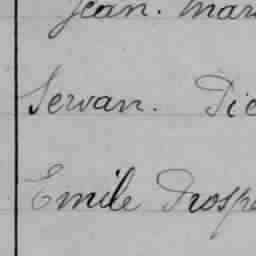 Jean. Mar
Servan. Pie
Emile Prosp